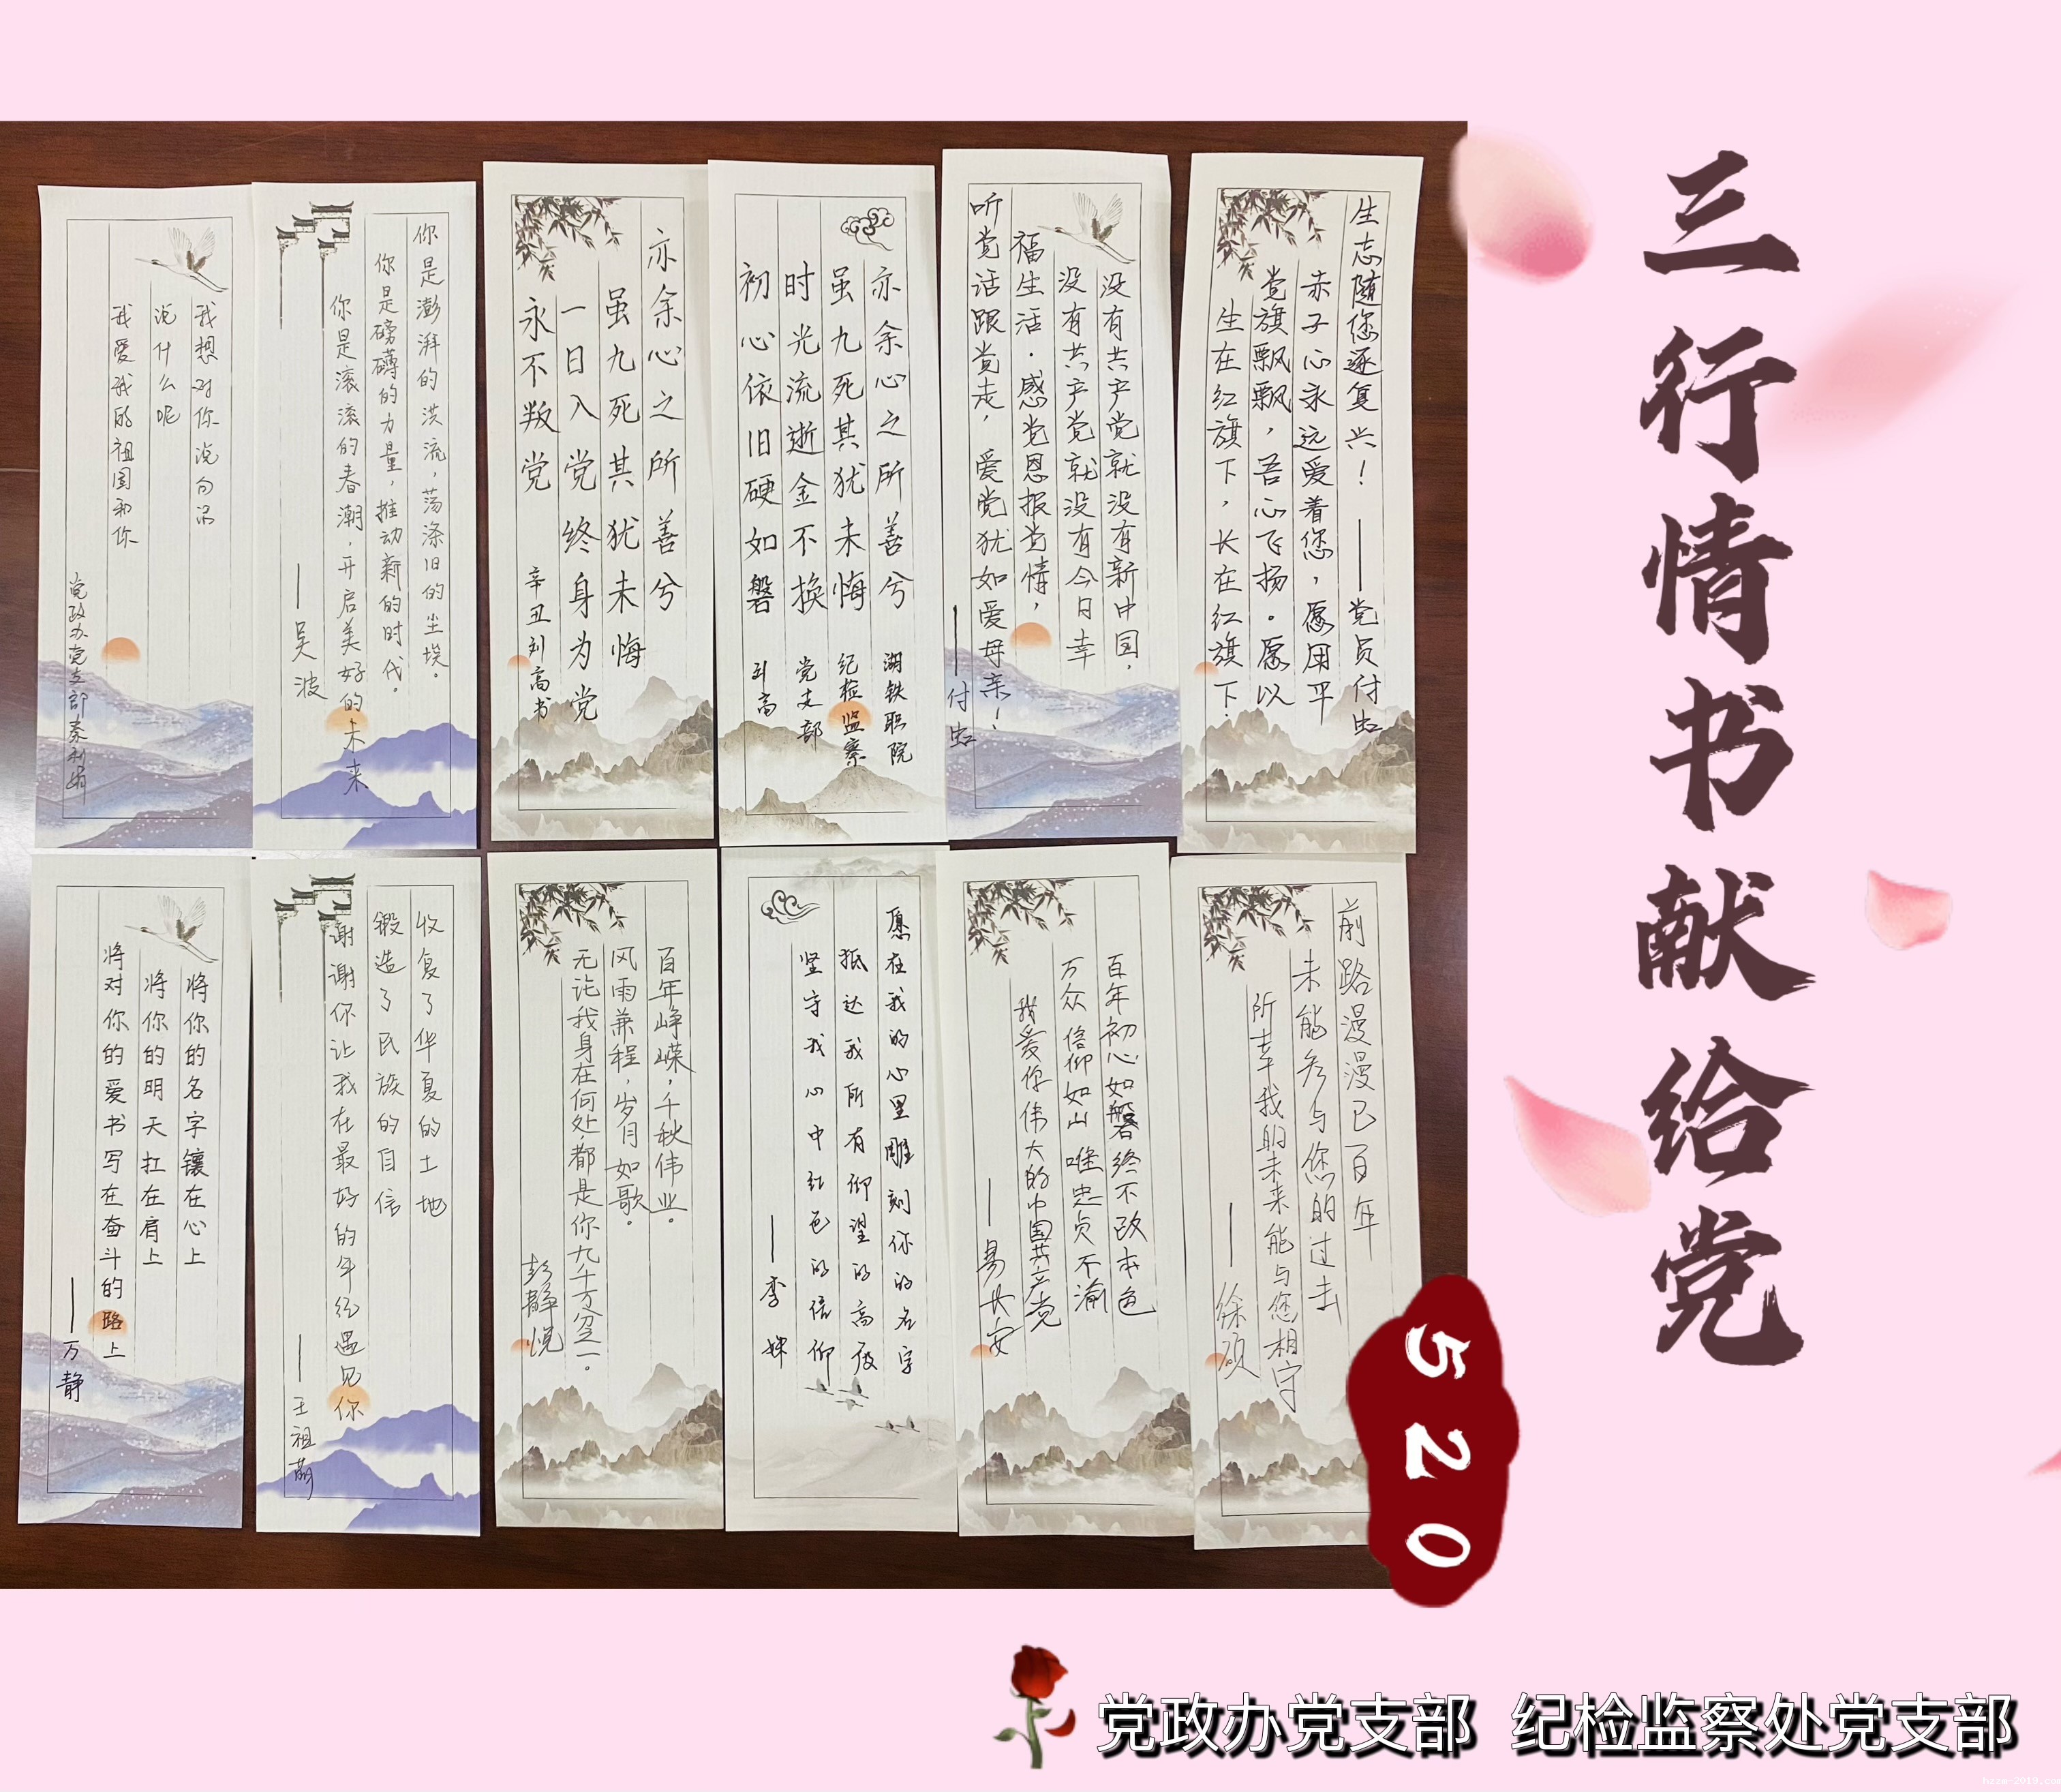 三行情书献给党
520
我想对你说句话
说什么呢
我爱我的祖国和你
党政办党支部秦利娟
你是澎湃的洪流，荡涤旧的尘埃。
你是磅礴的力量，推动新的时代。
你是滚滚的春潮，开启美好的未来
——吴波
亦余心之所善兮
虽九死其犹未悔
一日入党终身为党
永不叛党
辛丑刘高书
亦余心之所善兮
虽九死其犹未悔
时光流逝金不换
初心依旧硬如磐
湖铁职院
纪检监察
党支部
刘高
没有共产党就没有新中国，
没有共产党就没有今日幸
福生活。感党恩报党情，
听党话跟党走，爱党犹如爱母亲！
——付虹
生在红旗下，长在红旗下。
党旗飘飘，吾心飞扬。愿以
赤子心永远爱着您，愿用平
生志随您逐复兴！——党员付虹
将你的名字镶在心上
将你的明天扛在肩上
将对你的爱书写在奋斗的路上
——万静
收复了华夏的土地
锻造了民族的自信
谢谢你让我在最好的年纪遇见你
——王祖荫
百年峥嵘，千秋伟业。
风雨兼程，岁月如歌。
无论我身在何处，都是你九千万分之一。
彭静悦
愿在我的心里雕刻你的名字
抵达我所有仰望的高度
坚守我心中红色的信仰
——李婵
百年初心如磐终不改本色
万众信仰如山唯忠贞不渝
我爱你伟大的中国共产党
——易长安
前路漫漫已百年
未能参与您的过去
所幸我的未来能与您相守
——徐硕
党政办党支部 纪检监察处党支部
hzzm-2019.com